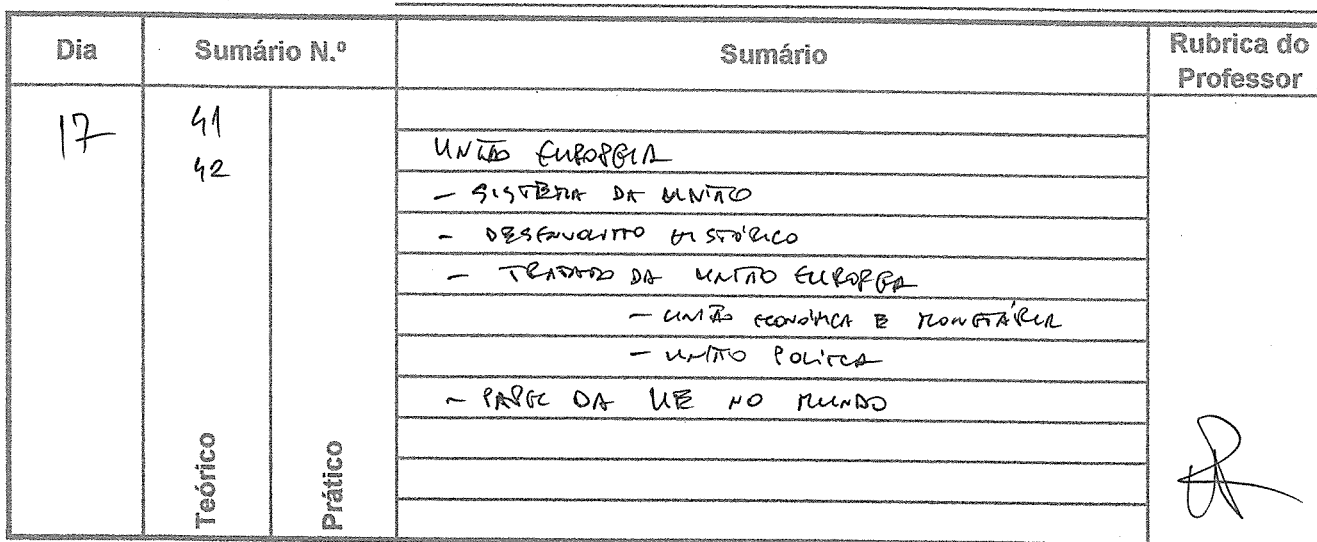 Dia
Sumário N.º
Sumário
Rubrica do
Professor
17
41
42
UNIÃO EUROPEIA
- SISTEMA DA UNIÃO
- DESENVOLVITO HISTÓRICO
- TRATADO DA UNIÃO EUROPEA
- UNIÃO ECONÓMICA E MONETÁRIA
- UNIÃO POLÍTICA
- PAPEL DA UE NO MUNDO
Teórico
Prático